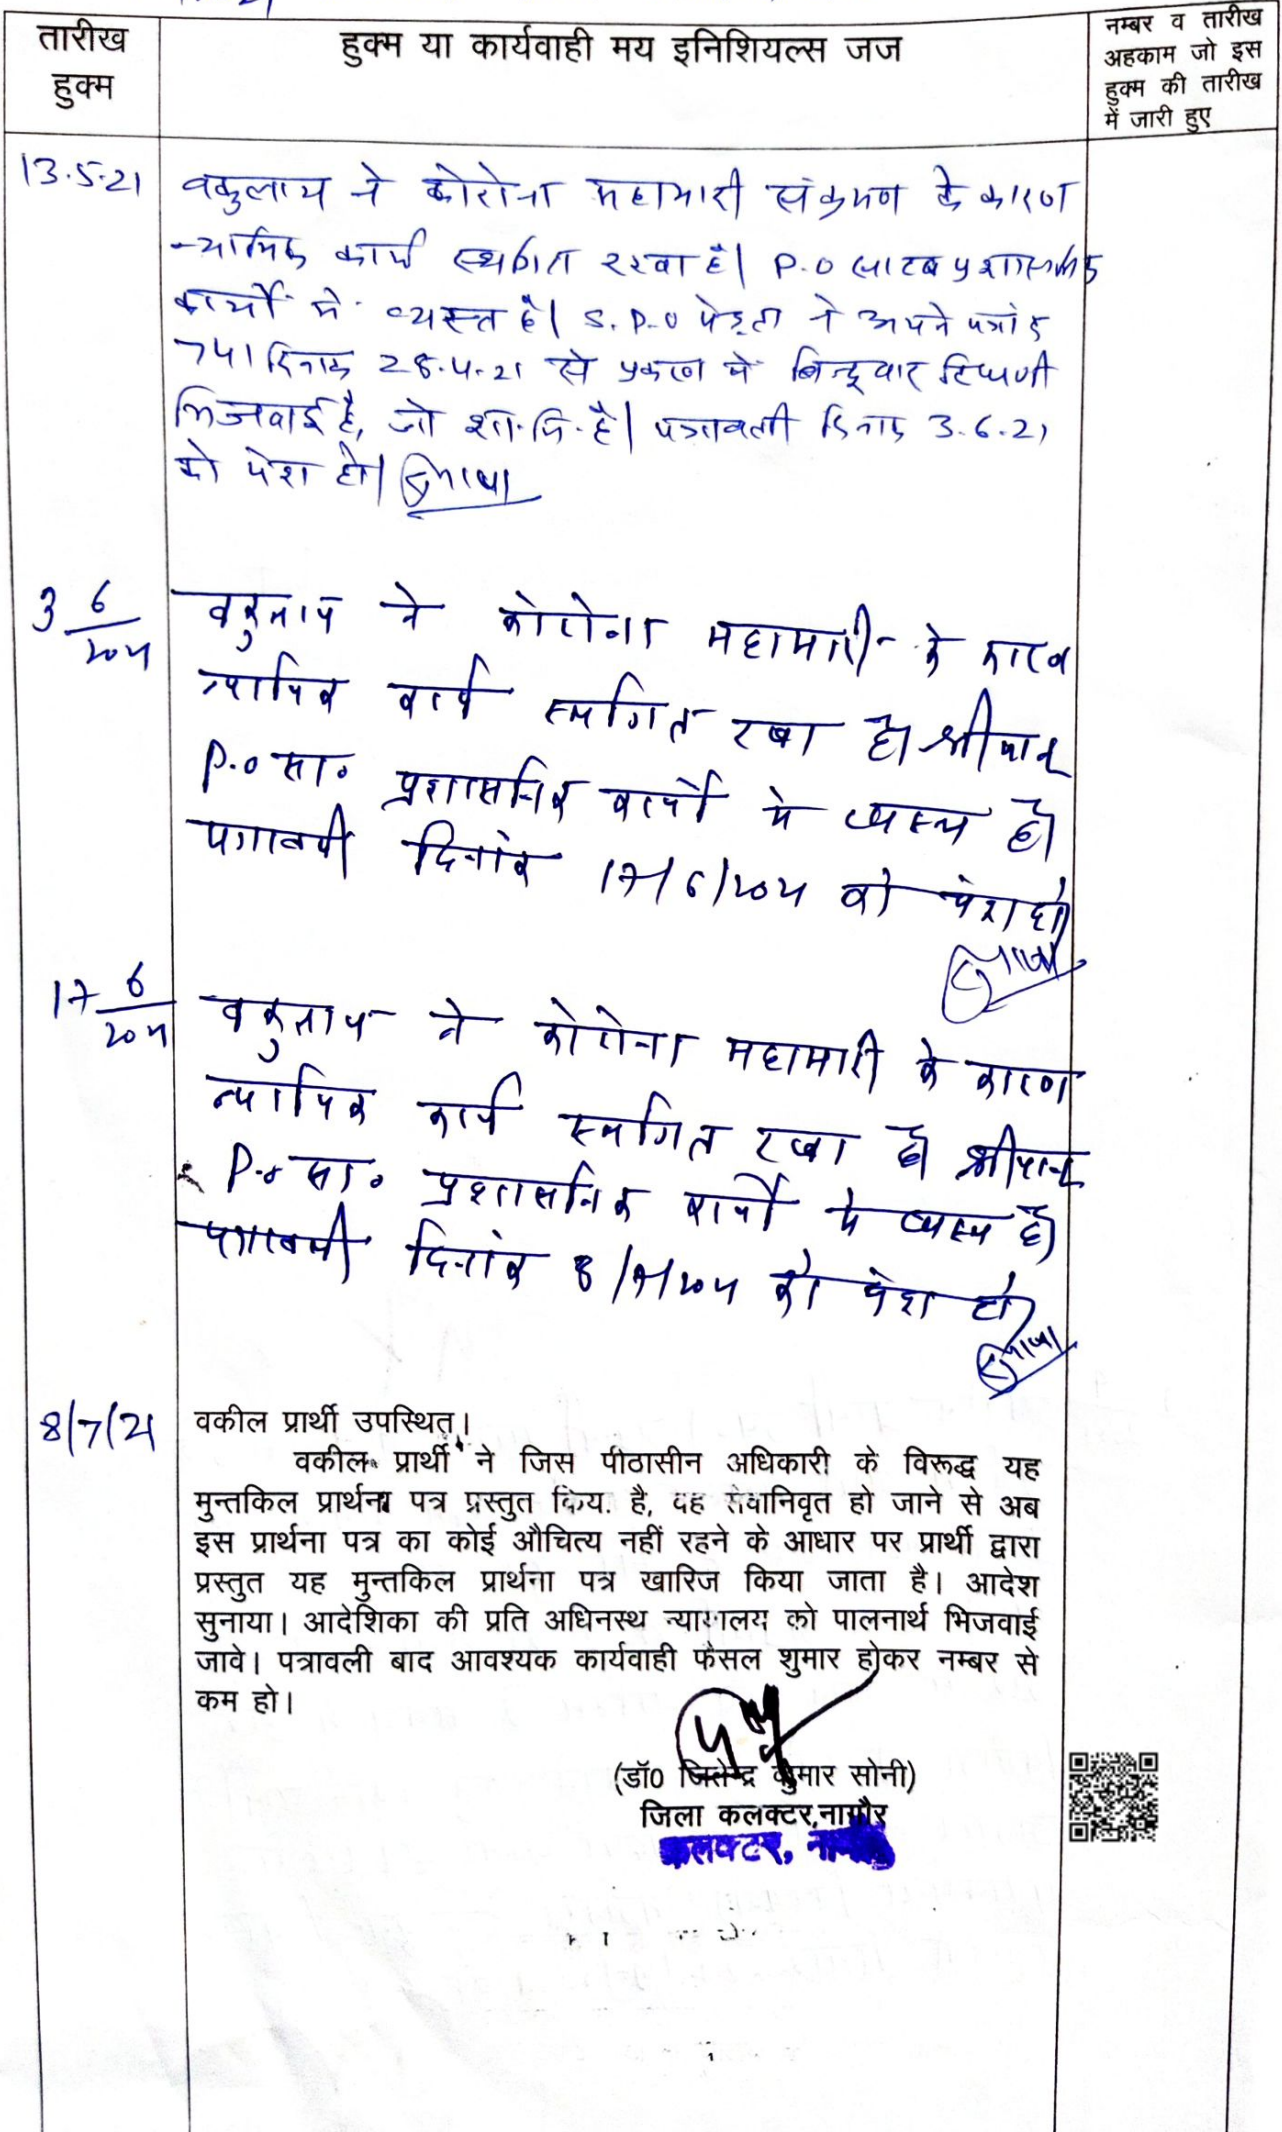 तारीख
हुक्म
हुक्म या कार्यवाही मय इनिशियल्स जज
नम्बर व तारीख
अहकाम जो इस
हुक्म की तारीख
में जारी हुए
13.5.21
वकुलाय ने कोरोना महामारी संक्रमण के कारण
न्यायिक कार्य स्थगित रखा है। P.O साहब प्रशासनिक
कार्यो में व्यस्त है। S.D.O मेड़ता ने अपने पत्रांक
741 दिनांक 28.4.21 से प्रकरण मे बिन्दूवार टिप्पणी
भिजवाई है, जो शा.मि.है। पत्रावली दिनांक 3.6.21
को पेश हो।
3 6/2021
वकुलाय ने कोरोना महामारी के कारण
न्यायिक कार्य स्थगित रखा है। श्रीमान
P.O सा० प्रशासनिक कार्यो मे व्यस्त है।
पत्रावली दिनांक 17/6/2021 को पेश हो।
17 6/2021
वकुलाय ने कोरोना महामारी के कारण
न्यायिक कार्य स्थगित रखा है। श्रीमान
P.O सा० प्रशासनिक कार्यो मे व्यस्त है।
पत्रावली दिनांक 8/7/2021 को पेश हो।
8/7/21
वकील प्रार्थी उपस्थित।
वकील प्रार्थी ने जिस पीठासीन अधिकारी के विरूद्ध यह
मुन्तकिल प्रार्थना पत्र प्रस्तुत किया है, वह सेवानिवृत हो जाने से अब
इस प्रार्थना पत्र का कोई औचित्य नहीं रहने के आधार पर प्रार्थी द्वारा
प्रस्तुत यह मुन्तकिल प्रार्थना पत्र खारिज किया जाता है। आदेश
सुनाया। आदेशिका की प्रति अधिनस्थ न्यायालय को पालनार्थ भिजवाई
जावे। पत्रावली बाद आवश्यक कार्यवाही फैसल शुमार होकर नम्बर से
कम हो।
(डॉ0 जितेन्द्र कुमार सोनी)
जिला कलक्टर,नागौर
कलक्टर, नागौर